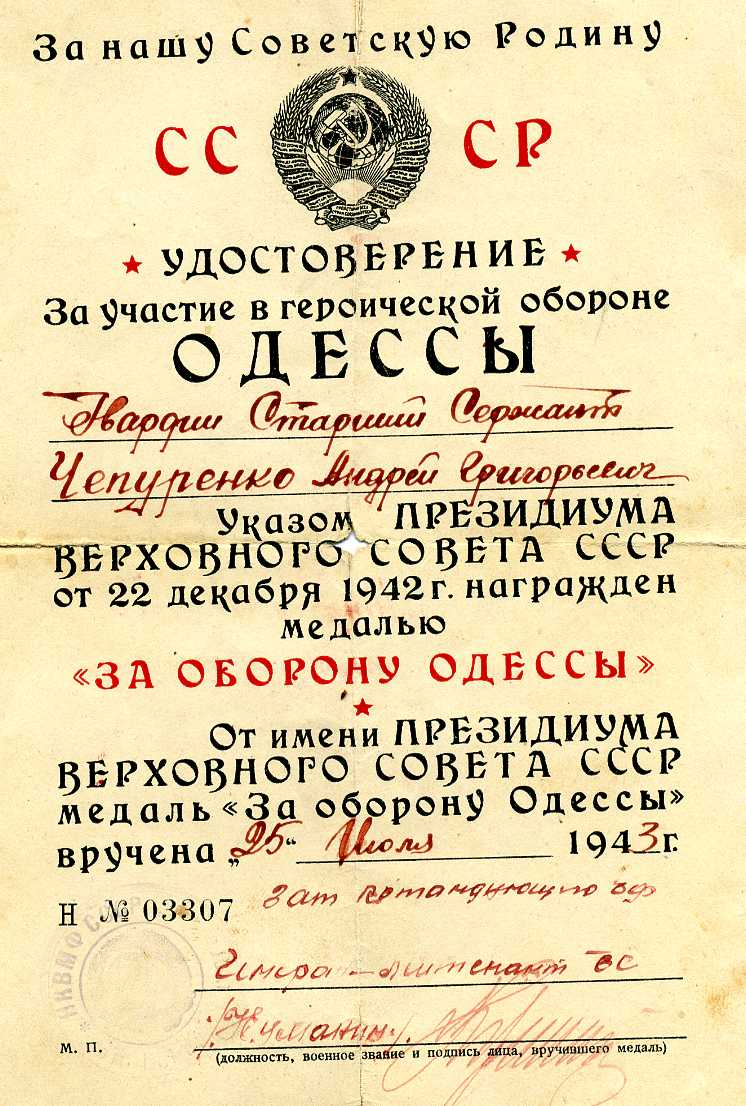 За нашу Советскую Родину
СССР
УДОСТОВЕРЕНИЕ
За участие в героической обороне
ОДЕССЫ
Гвардии Старший Сержант
Чепуренко Андрей Григорьевич
Указом ПРЕЗИДИУМА
ВЕРХОВНОГО СОВЕТА СССР
от 22 декабря 1942 г. награжден
медалью
«ЗА ОБОРОНУ ОДЕССЫ»
От имени ПРЕЗИДИУМА
ВЕРХОВНОГО СОВЕТА СССР
медаль «За оборону Одессы»
вручена „25“ Июля 1943 г.
Н № 03307
НКВМФ
М. П.
(должность, военное звание и подпись лица, вручившего медаль)